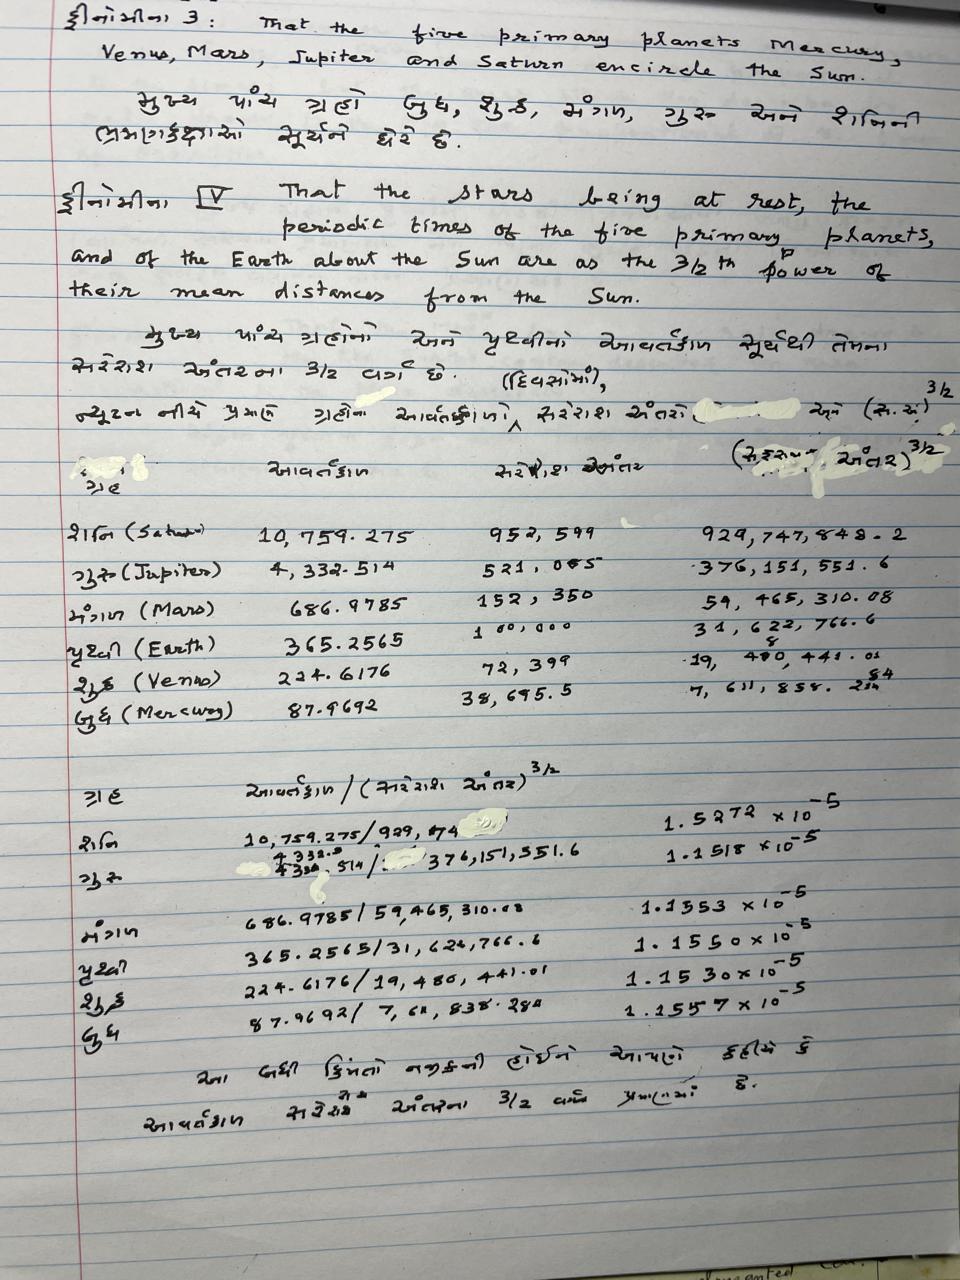 ફીનોમીના 3: That the five primary planets Mercury,
Venus, Mars, Jupiter and Saturn encircle the Sun.
મુખ્ય પાંચ ગ્રહો બુધ, શુક્ર, મંગળ, ગુરુ અને શનિની
ભ્રમણકક્ષાઓ સૂર્યને ઘેરે છે.
ફીનોમીના IV That the stars being at rest, the
periodic times of the five primary planets,
and of the Earth about the Sun are as the 3/2 th power of
their mean distances from the Sun.
મુખ્ય પાંચ ગ્રહોનો અને પૃથ્વીનો આવર્તકાળ સૂર્યથી તેમના
સરેરાશ અંતરના 3/2 વર્ગ છે. (દિવસોમાં),
ન્યૂટન નીચે પ્રમાણે ગ્રહોના આવર્તકાળો, સરેરાશ અંતરો અને (સ.અં)^3/2
ગ્રહ આવર્તકાળ સરેરાશ અંતર (સરેરાશ અંતર)^3/2
શનિ (Saturn) 10,759.275 952,599 929,747,848.2
ગુરુ (Jupiter) 4,332.514 521,065 376,151,551.6
મંગળ (Mars) 686.9785 152,350 59,465,310.08
પૃથ્વી (Earth) 365.2565 100,000 31,622,766.6
શુક્ર (Venus) 224.6176 72,399 19,480,441.01
બુધ (Mercury) 87.9692 38,695.5 7,611,858.284
ગ્રહ આવર્તકાળ/(સરેરાશ અંતર)^3/2
શનિ 10,759.275/929,74 1.5272 × 10^-5
ગુરુ 4332.514/376,151,551.6 1.1518 × 10^-5
મંગળ 686.9785/59,465,310.08 1.1553 × 10^-5
પૃથ્વી 365.2565/31,622,766.6 1.1550 × 10^-5
શુક્ર 224.6176/19,480,441.01 1.1530 × 10^-5
બુધ 87.9692/7,611,838.284 1.1557 × 10^-5
આ બધી કિંમતો નજીકની હોઈને આપણે કહીએ કે
આવર્તકાળ સરેરાશ અંતરના 3/2 વર્ગ પ્રમાણમાં છે.